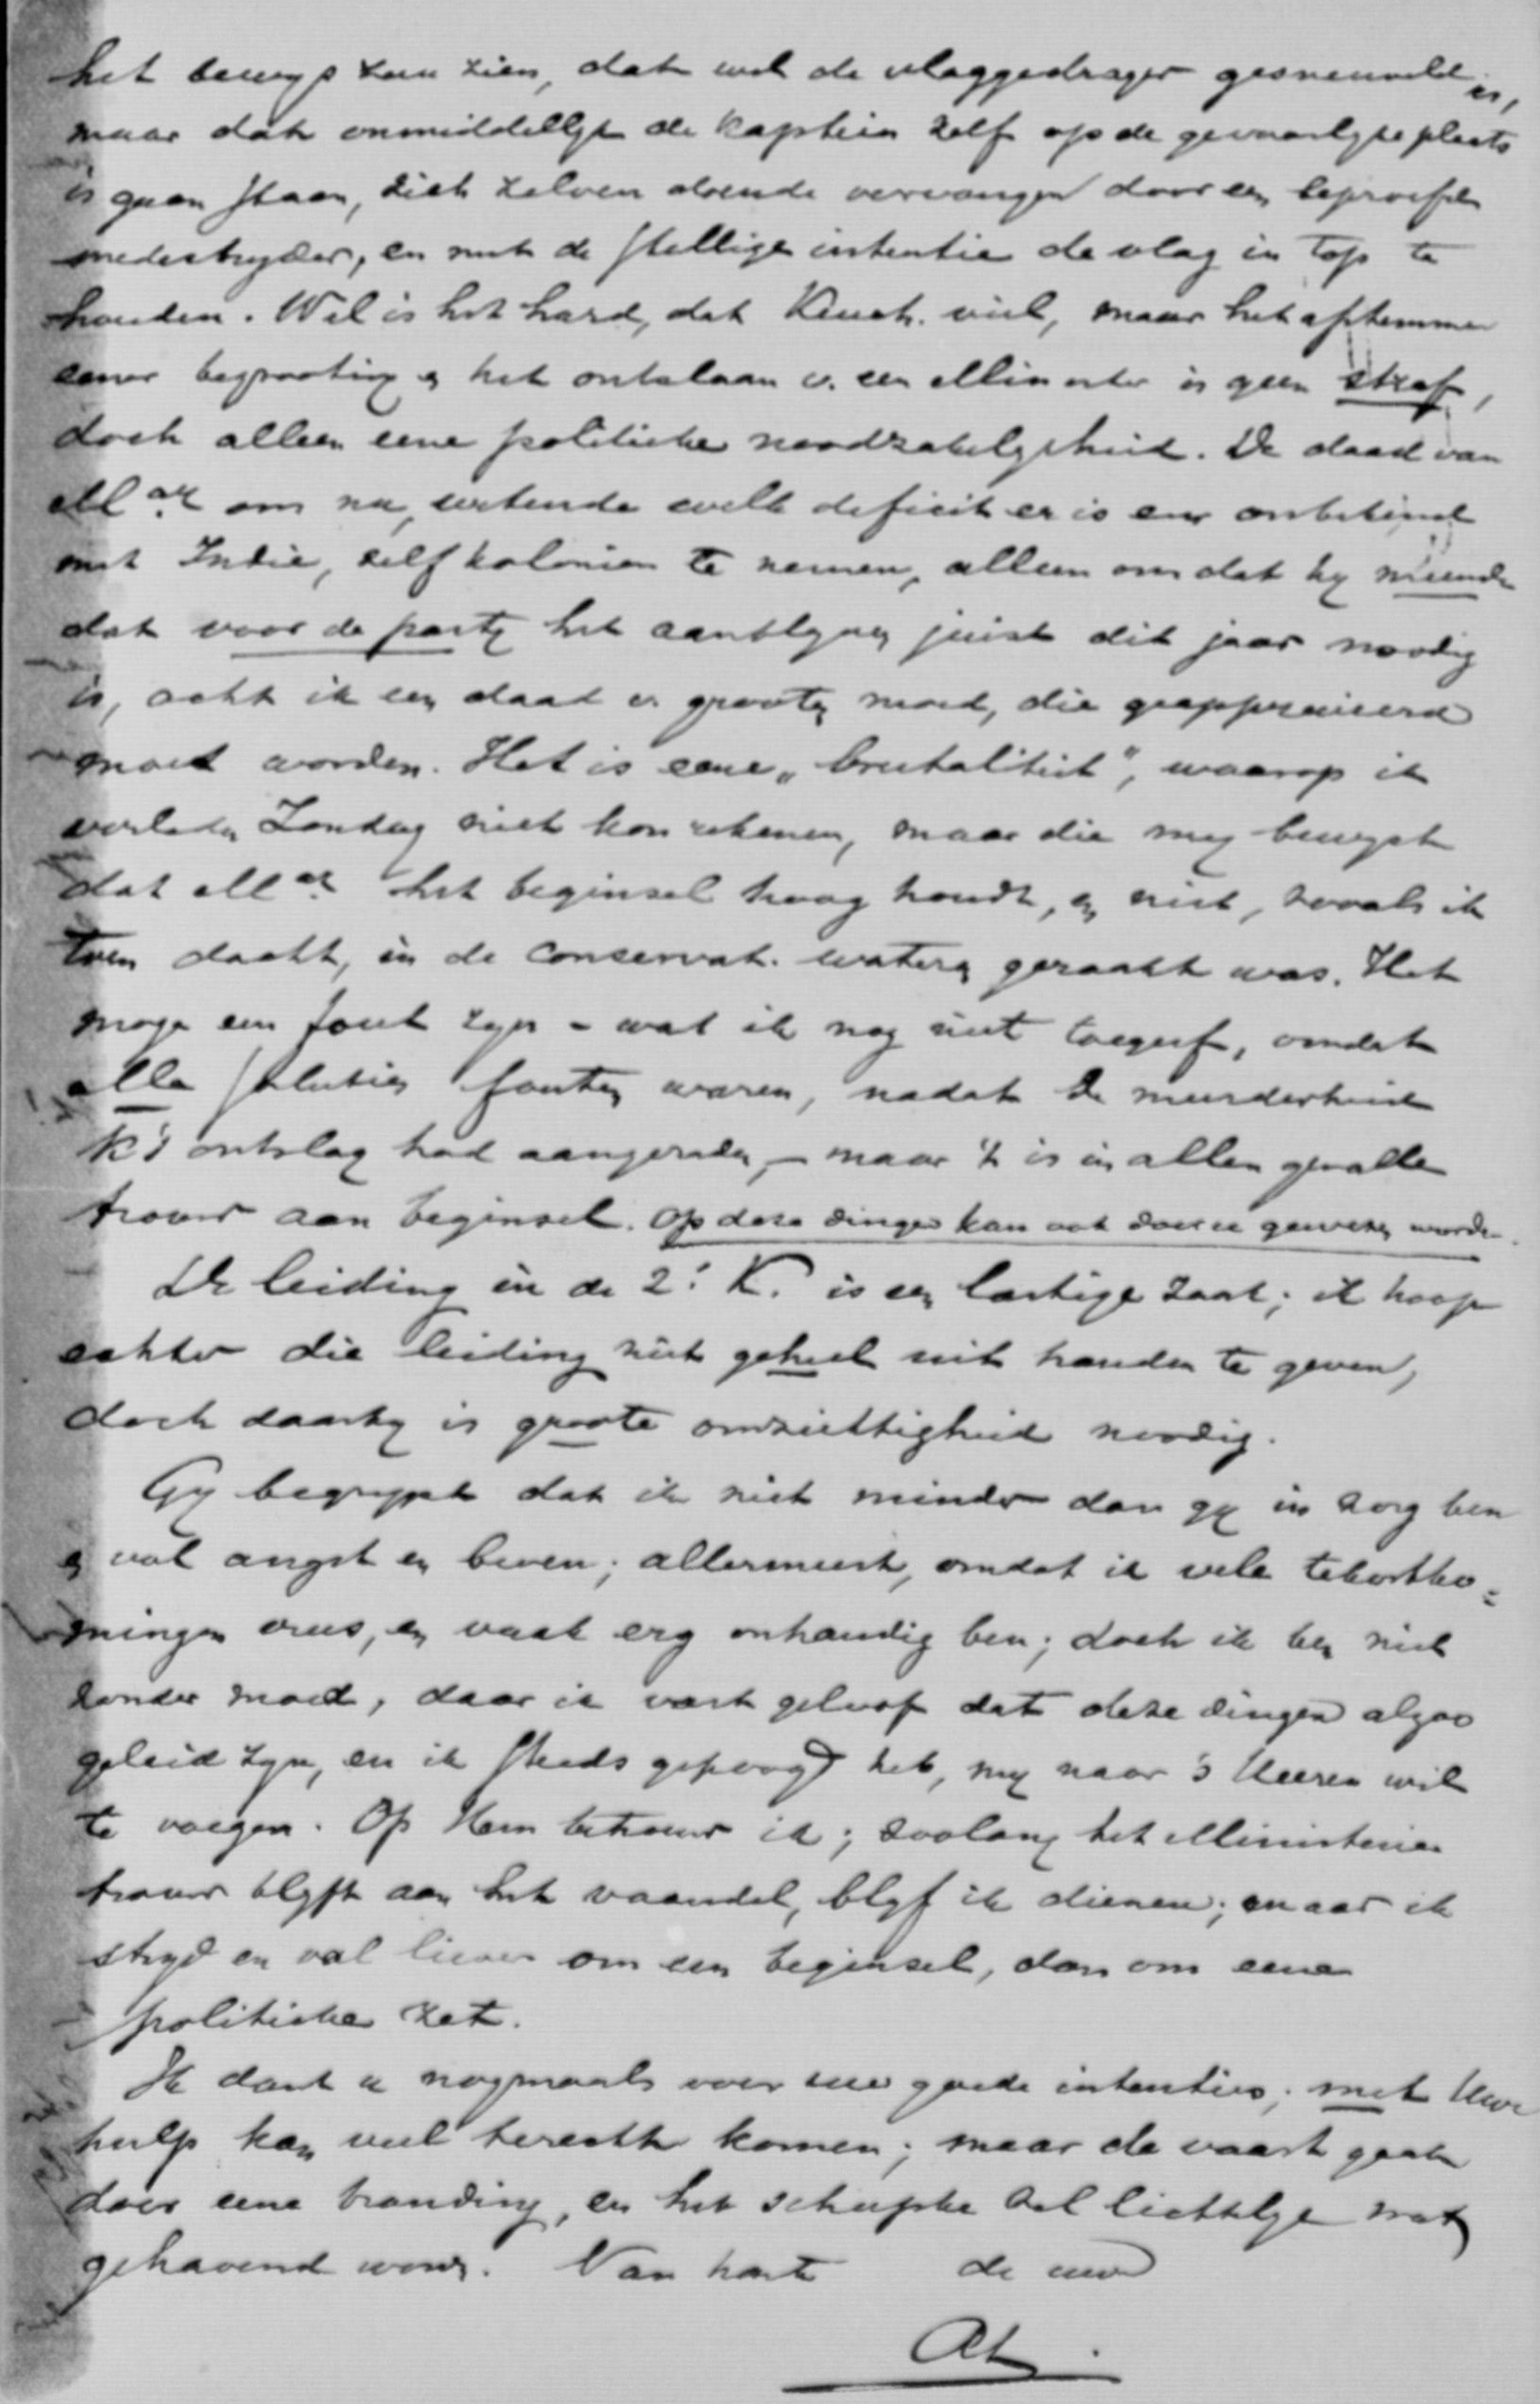 het bewys kan zien, dat wel de vlaggedrager gesneuveld is,
maar dat onmiddellyk de kaptein zelf op de gevaarlyke plaats
is gaan staan, zich zelven doende vervangen door een beproefden
medestryder, en met de stellige intentie de vlag in top te
houden. Wel is het hard, dat Keuch. viel, maar het afstemmen
eener begrooting en het ontslaan v. een Minister is geen straf,
doch alleen eene politieke noodzakelykheid. De daad van
M om nu, wetende welk deficit er is en onbekend
met Indie, zelf kolonien te nemen, alleen om dat hy meende
dat voor de party het aanblyven juist dit jaar noodig
is, acht ik een daad v. grooten moed, die geapprecieerd
moet worden. Het is eene "brutaliteit", waarop ik
verleden Zondag niet kon rekenen, maar die my bewyst
dat M het beginsel hoog houdt, en niet, zooals ik
toen dacht, in de conservat. wateren geraakt was. Het
moge een fout zyn - wat ik nog niet toegeef, omdat
alle soluties fouten waren, nadat de meerderheid
K's ontslag had aangeraden, - maar 't is in allen gevalle
trouw aan beginsel. Op deze dingen kan ook door u gewezen worden.
De leiding in de 2e K. is een lastige zaak; ik hoop
echter die leiding niet geheel uit handen te geven,
doch daarby is groote omzichtigheid noodig.
Gy begrypt dat ik niet minder dan gy in zorg ben
en vol angst en beven; allermeest, omdat ik vele tekortko=
mingen vrees, en vaak erg onhandig ben; doch ik ben niet
zonder moed, daar ik vast geloof dat deze dingen alzoo
geleid zyn, en ik steeds gepoogd heb, my naar 's Heeren wil
te voegen. Op Hem betrouw ik; zoolang het Ministerie
trouw blyft aan het vaandel, blyf ik dienen; maar ik
stryd en val liever om een beginsel, dan om eene
politieke zet.
Ik dank u nogmaals voor uwe goede intenties; met Uwe
hulp kan veel terecht komen; maar de vaart gaat
door eene branding, en het scheepke zal lichtelyk wat
gehavend worden. Van harte de uwe